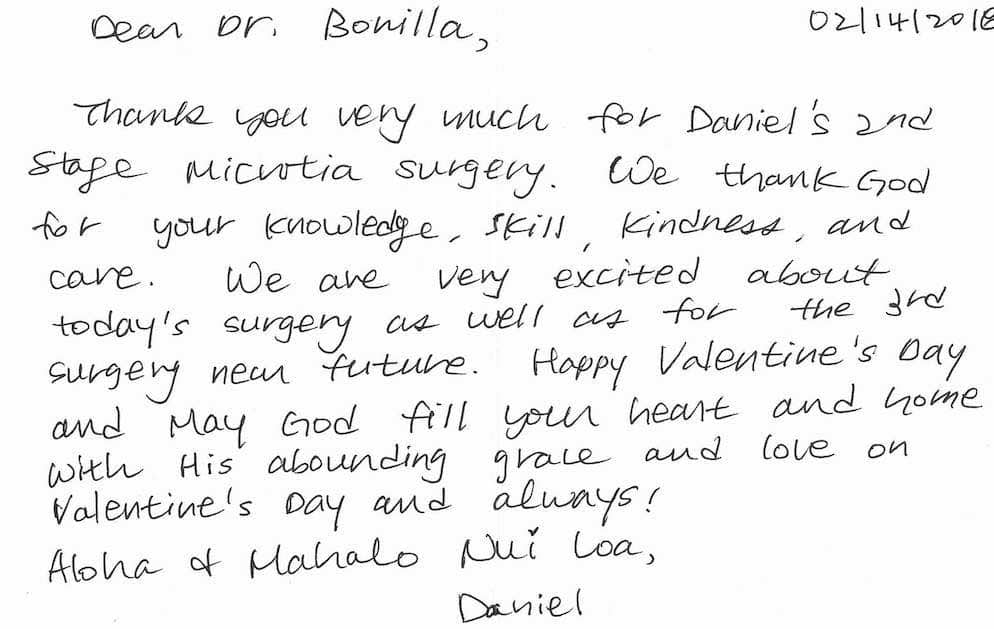 Dear Dr. Bonilla, 02/14/2018
Thank you very much for Daniel's 2nd
Stage Microtia surgery. We thank God
for your knowledge, skill, kindness, and
care. We are very excited about
today's surgery as well as for the 3rd
surgery near future. Happy Valentine's Day
and May God fill your heart and home
with His abounding grace and love on
Valentine's Day and always!
Aloha & Mahalo Nui Loa,
Daniel